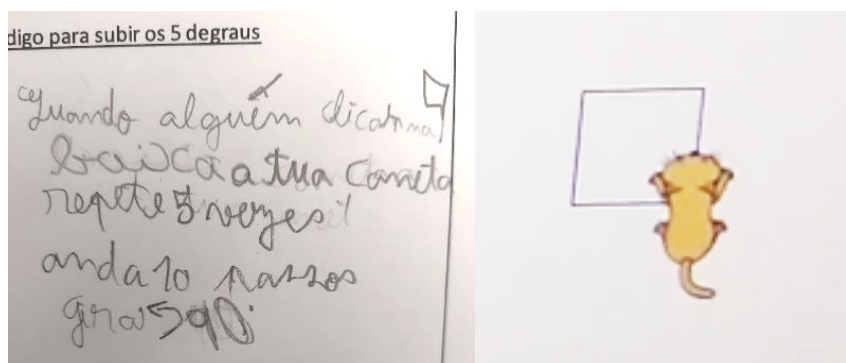 digo para subir os 5 degraus
Quando alguém clicar na
baixa a tua caneta
repete 5 vezes
anda 10 passos
gira 90